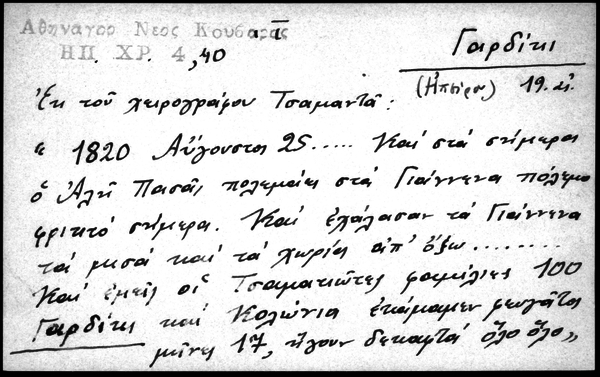 Αθηναγορ Νεος Κουβαρας
ΗΠ. ΧΡ. 4, 40 Ι
Γαρδίκι
(Ἠπείρου) 19. αἰ.
Ἐκ τοῦ χειρογράφου Τσαμαντᾶ:
" 1820 Αὔγουστος 25..... Καί στά σήμερας
ὁ Ἀλῆ Πασᾶς πολεμάει στά Γιάννενα πόλεμο
φριττό σήμερα. Καί ἐχάλασαν τά Γιάννενα
τά μισά καί τά χωρία ἀπ' ὄξω........
Καί ἐμεῖς οἱ Τσαματιῶτες φαμίλιες 100
Γαρδίκι καί Κολώνια ἐκάμαμεν φευγάτοι
μῆνες 17, ἤγουν δεκαφτά ὅλο ὅλο,,